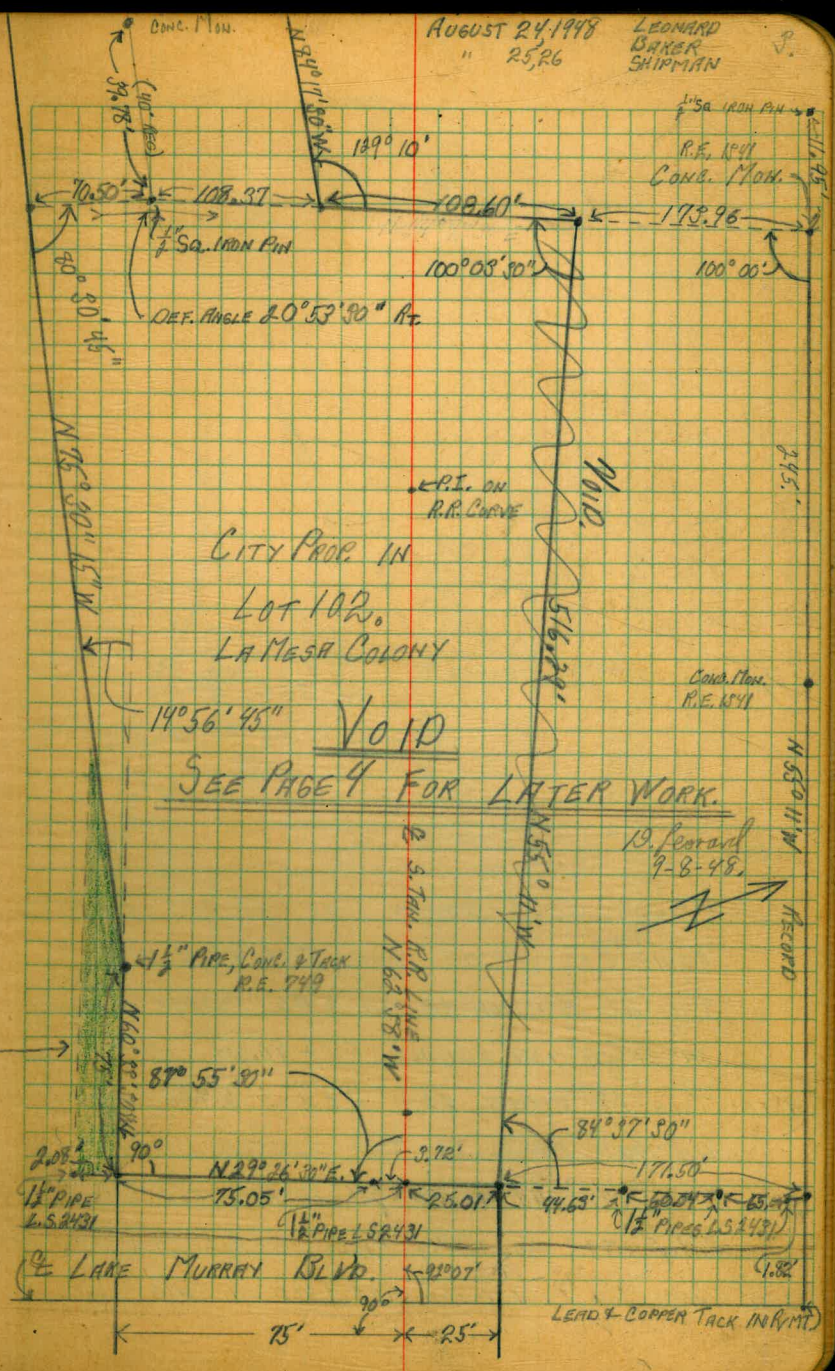 CONC. MON.
AUGUST 24, 1948
" 25, 26
LEONARD
BAKER
SHIPMAN
3.
N 84° 17' 30" W
39.78'
(40' REC)
1/2" SQ. IRON PIN
R.E. 1841
CONC. MON.
11.95'
139° 10'
70.50'
108.37
108.60'
173.96
1/2" SQ. IRON PIN
100° 03' 30"
100° 00'
DEF. ANGLE 20° 53' 30" RT.
40° 30' 45"
N 75° 30' 15" W
245.'
VOID.
P.I. ON
R.R. CURVE
CITY PROP. IN
LOT 102.
LA MESA COLONY
CONC. MON.
R.E. 1841
14° 56' 45"
VOID
SEE PAGE 4 FOR LATER WORK.
D. Leonard
9-8-48.
N 55° 11' W
N 55° 11' W RECORD
℄ S. TAN. R.R. LINE
N 62° 58' W
1 1/2" PIPE, CONC. & TACK
R.E. 749
75'
87° 55' 30"
84° 37' 30"
2.08'
90°
N 29° 26' 30" E.
3.72'
171.50'
75.05'
25.01'
44.63'
1 1/2" PIPE
L.S. 2431
1 1/2" PIPE LS 2431
1 1/2" PIPES L.S. 2431
1.82'
℄ LAKE MURRAY BLVD.
92° 07'
90°
LEAD & COPPER TACK IN PVMT)
75'
25'